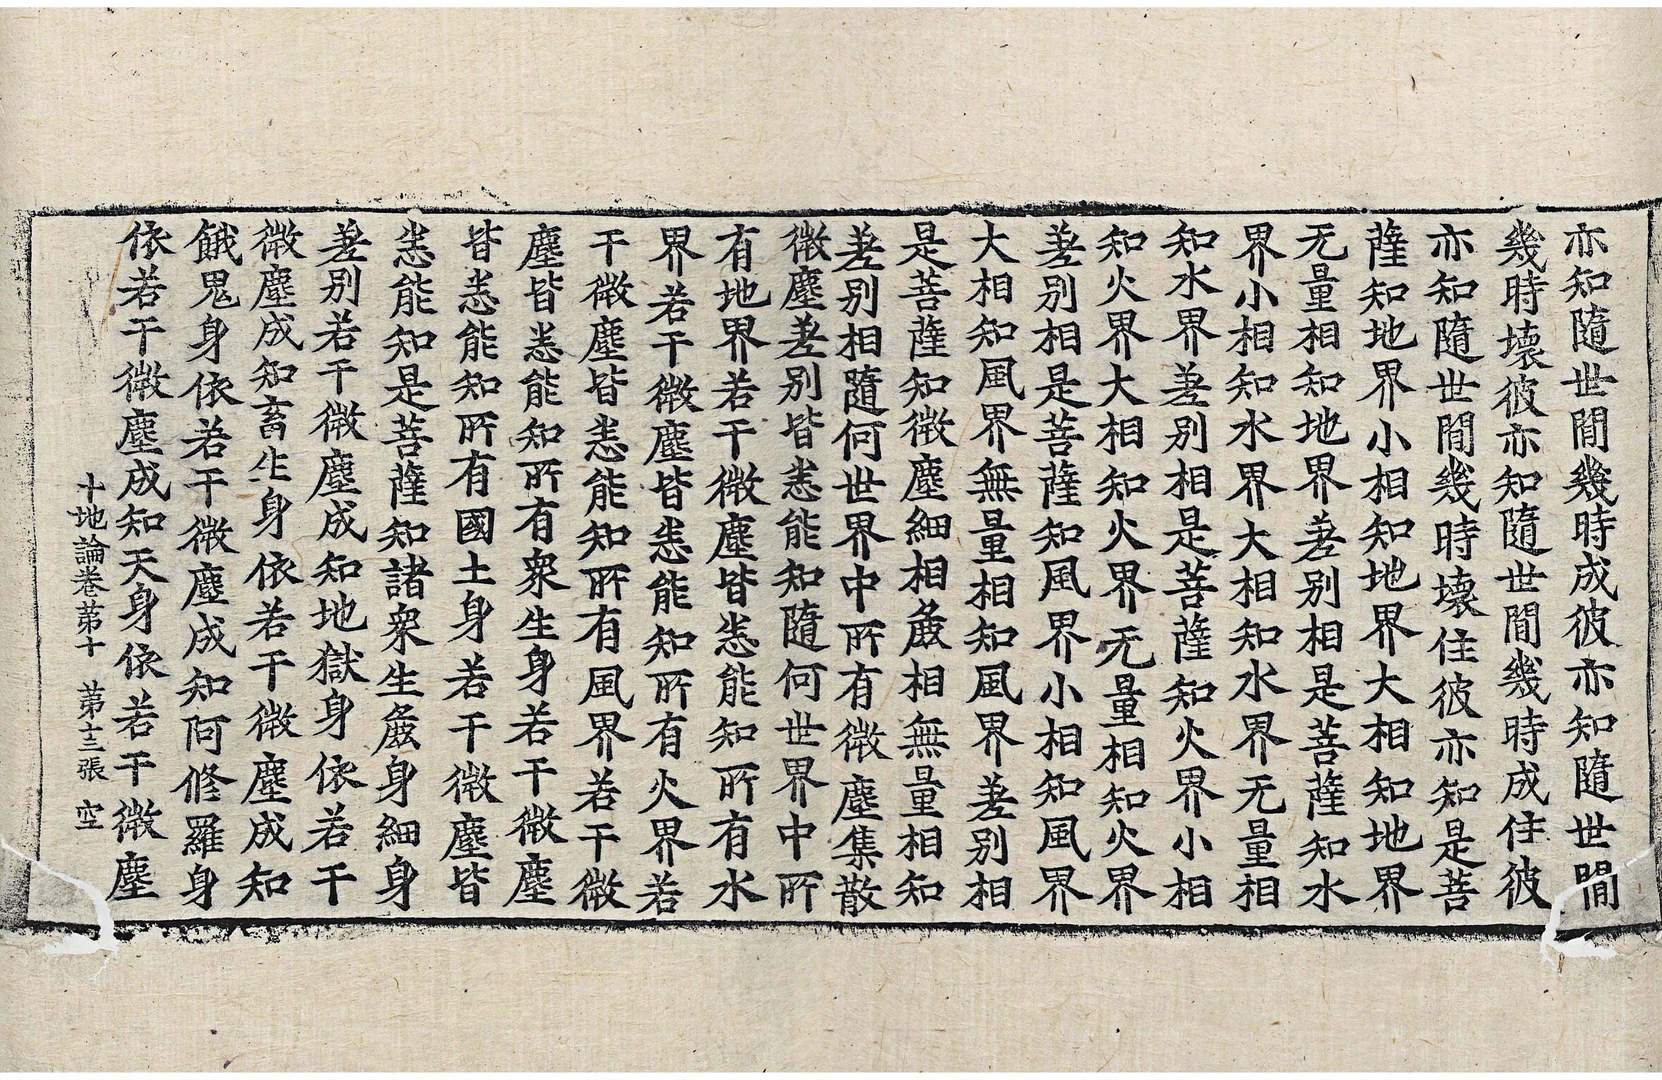 亦知隨世閒幾時成彼亦知隨世閒
幾時壞彼亦知隨世閒幾時成住彼
亦知隨世閒幾時壞住彼亦知是菩
薩知地界小相知地界大相知地界
无量相知地界差別相是菩薩知水
界小相知水界大相知水界无量相
知水界差別相是菩薩知火界小相
知火界大相知火界无量相知火界
差別相是菩薩知風界小相知風界
大相知風界無量相知風界差別相
是菩薩知微塵細相麁相無量相知
差別相隨何世界中所有微塵集散
微塵差別皆悉能知隨何世界中所
有地界若干微塵皆悉能知所有水
界若干微塵皆悉能知所有火界若
干微塵皆悉能知所有風界若干微
塵皆悉能知所有衆生身若干微塵
皆悉能知所有國土身若干微塵皆
悉能知是菩薩知諸衆生麁身細身
差別若干微塵成知地獄身依若干
微塵成知畜生身依若干微塵成知
餓鬼身依若干微塵成知阿修羅身
依若干微塵成知天身依若干微塵
十地論卷苐十 苐十三張 空